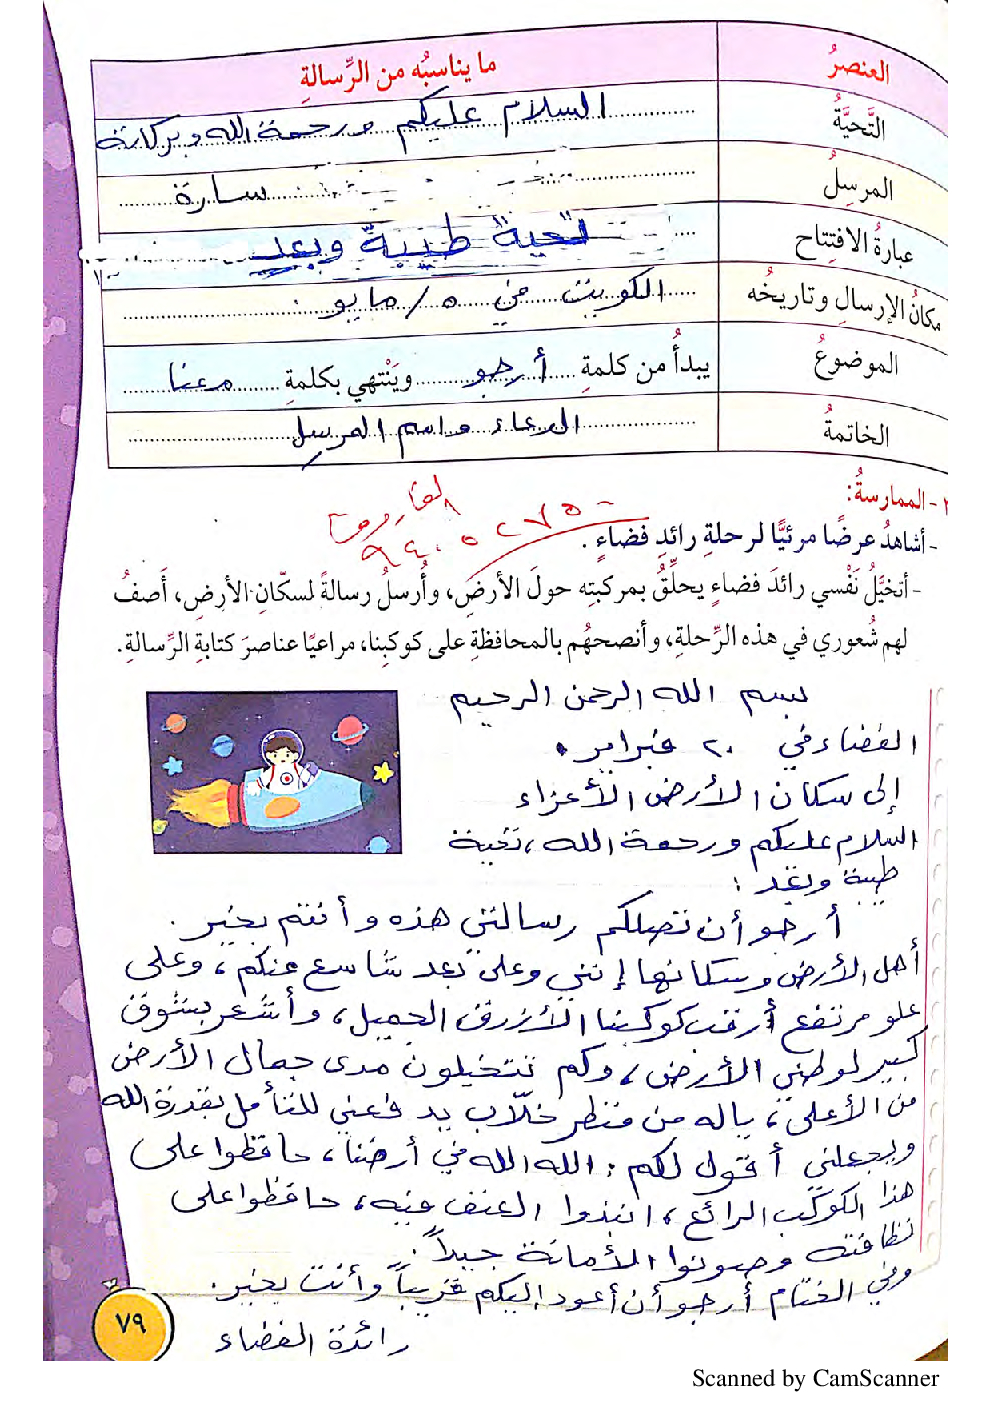 العنصرُ ما يناسبُه من الرِّسالةِ
التَّحيَّةُ السلام عليكم ورحمة الله وبركاتة
المرسِلُ سارة
عبارةُ الافتِتاح تحية طيبة وبعد
مكانُ الإرسالِ وتاريخُه الكويت في ٥/مايو.
الموضوعُ يبدأُ من كلمةِ أرجو وَيَنْتهي بكلمةِ معنا
الخاتمةُ الدعاء واسم المرسل
٢ - الممارسةُ:
- أشاهدُ عرضًا مرئيًّا لرحلةِ رائدِ فضاءٍ .
- أتخيَّلُ نَفْسي رائدَ فضاءٍ يحلِّقُ بمركبتِه حولَ الأرضِ، وأُرسلُ رسالةً لسكَّانِ الأرضِ، أصفُ
لهم شُعوري في هذه الرِّحلةِ، وأنصحُهُم بالمحافظةِ على كوكبِنا، مراعيًا عناصرَ كتابةِ الرِّسالةِ.
بسم الله الرحمن الرحيم
الفضاء في ٢٠ فبراير.
إلى سكان الأرض الأعزاء
السلام عليكم ورحمة الله، تحية
طيبة وبعد :
أرجو أن تصلكم رسالتي هذه وأنتم بخير.
أهل الأرض وسكانها إنني وعلى بعد شاسع منكم، وعلى
علو مرتفع أرقب كوكبنا الأزرق الجميل، وأشعر بشوق
كبير لوطني الأرض، وكم تتخيلون مدى جمال الأرض
من الأعلى، ياله من منظر خلّاب يدفعني للتأمل بقدرة الله
ويجعلني أقول لكم: الله الله في أرضنا، حافظوا على
هذا الكوكب الرائع، انبذوا العنف فيه، حافظوا على
نظافته وصونوا الأمانة جيداً.
وفي الختام أرجو أن أعود إليكم قريباً وأنت بخير.
رائدة الفضاء
٧٩
Scanned by CamScanner